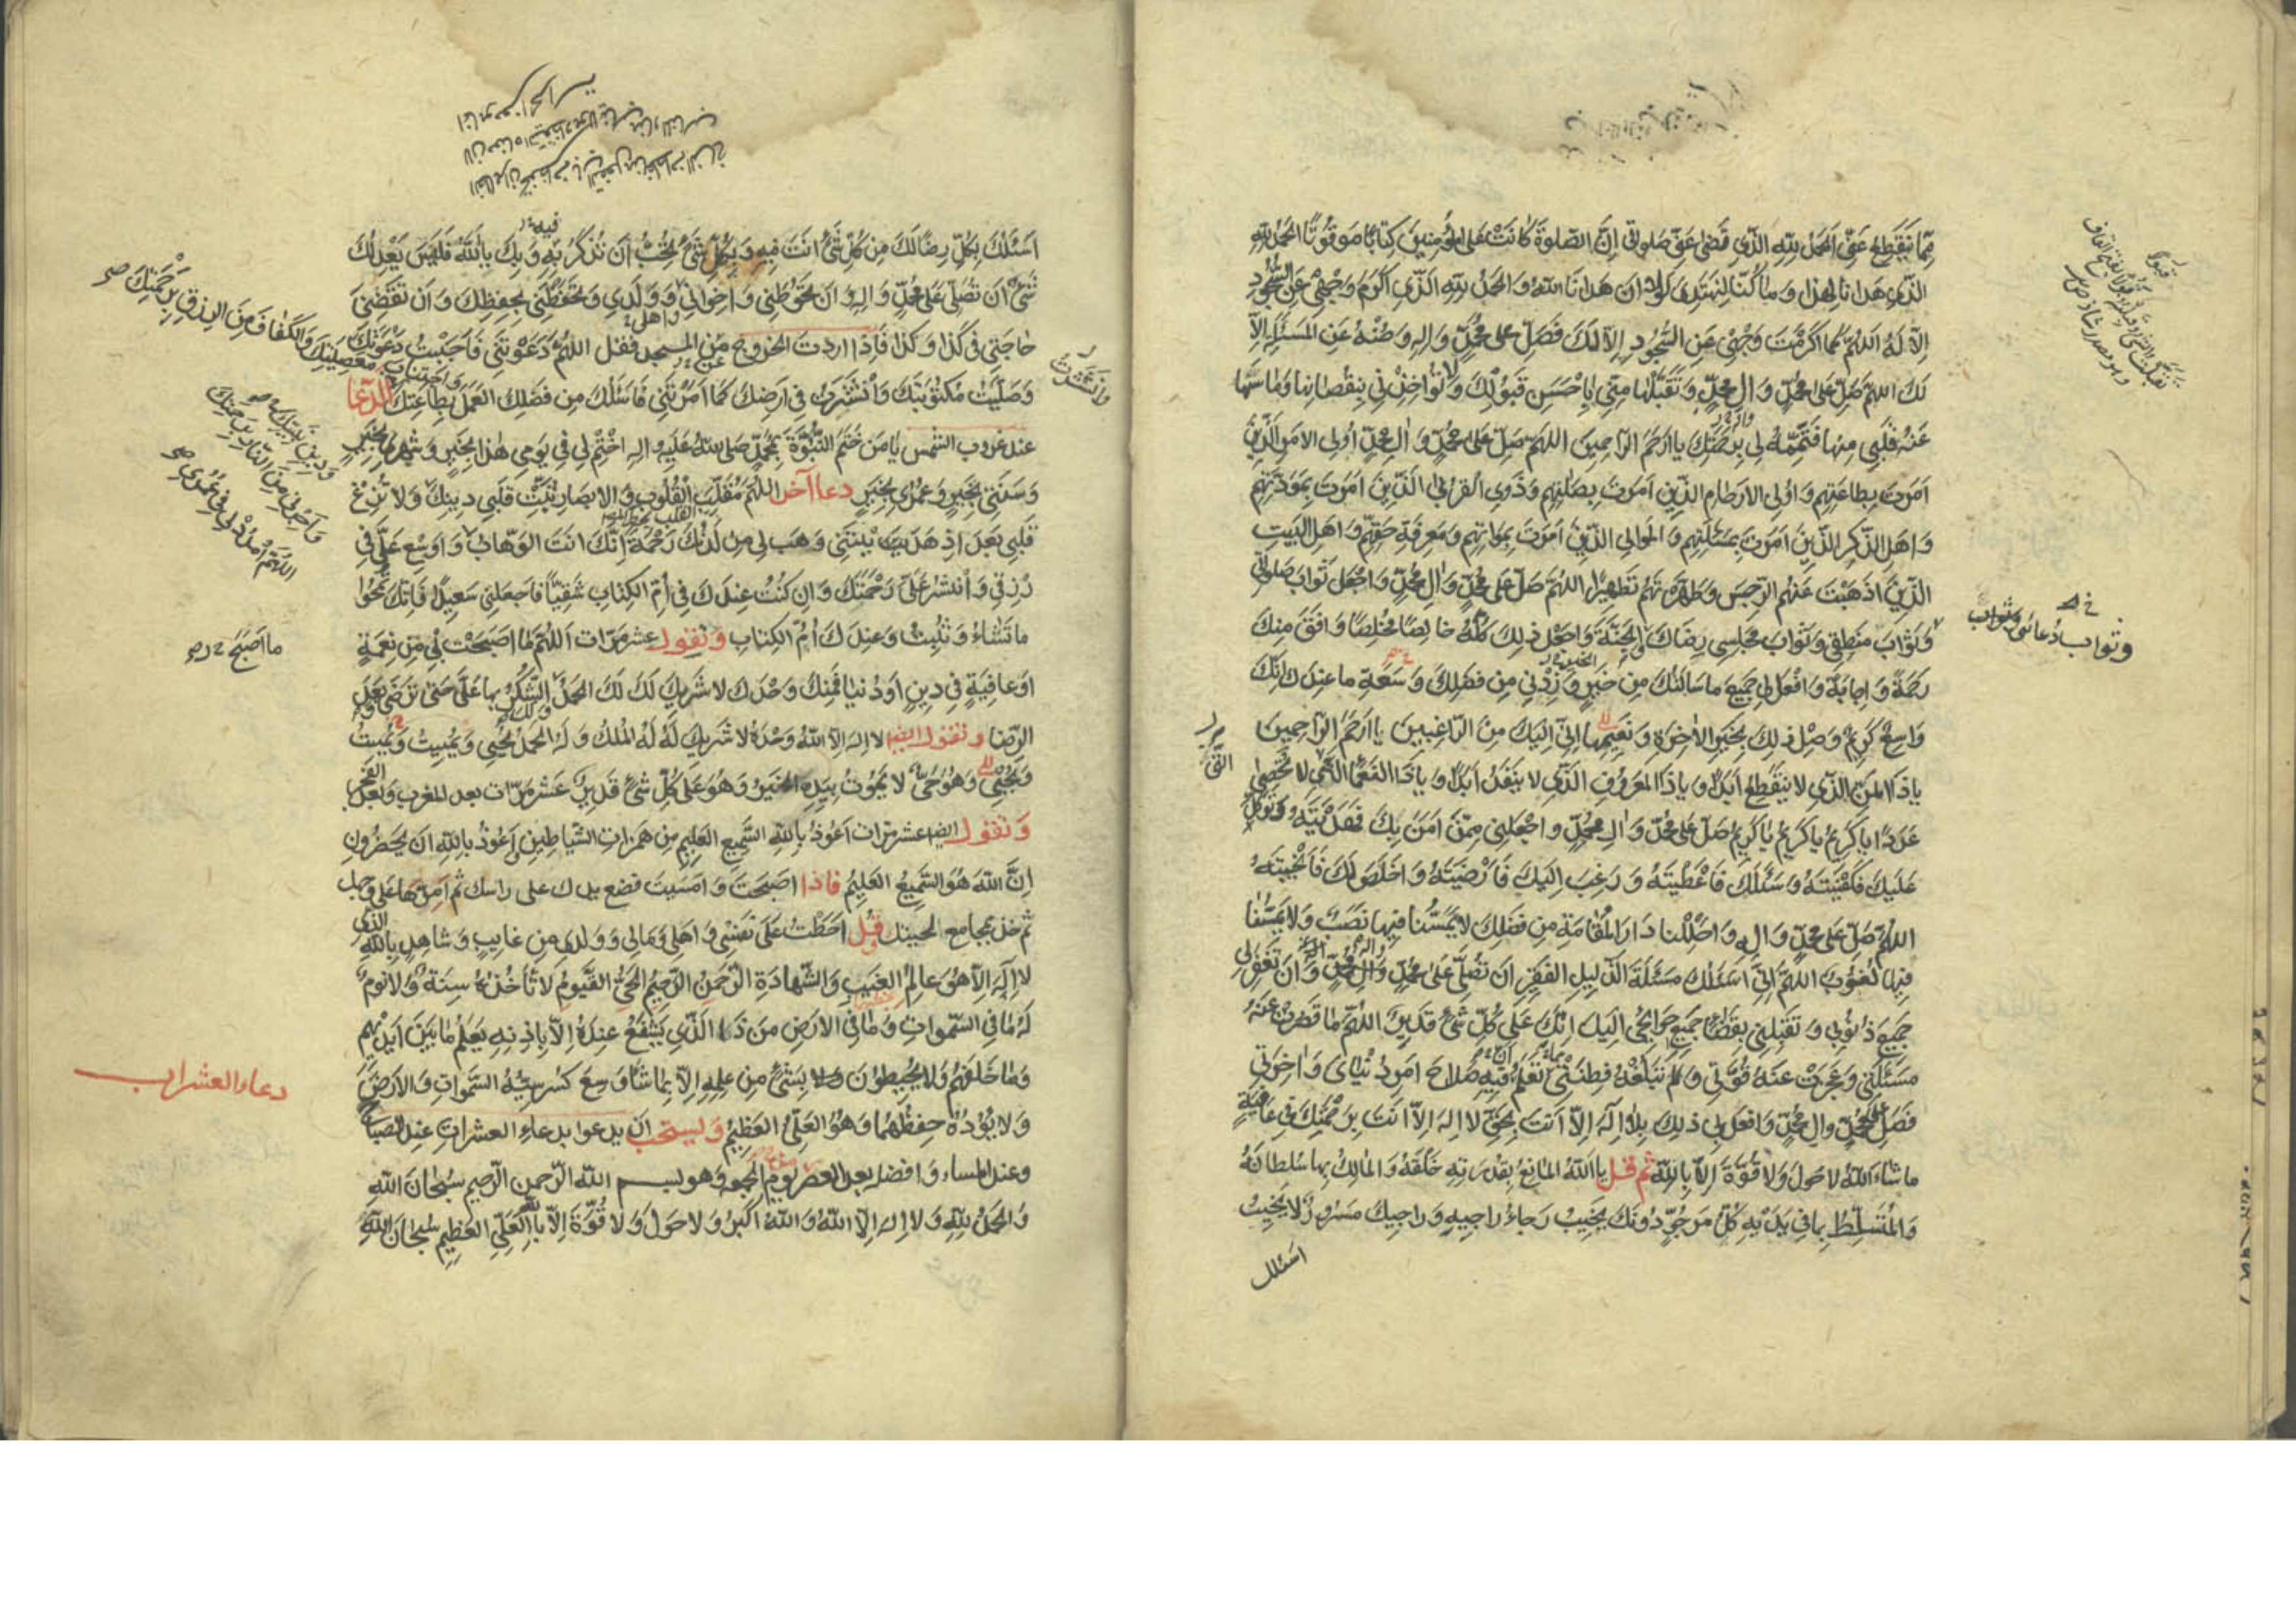 مما تنقطع عني الحمد لله الذي قضى عني صلوتي ان الصلوة كانت على المؤمنين كتابا موقوتا الحمد لله
الذي هدانا لهذا وما كنا لنهتدي لولا ان هدانا الله والحمد لله الذي اكرم وجهي عن السجود
الا له اللهم كما اكرمت وجهي عن السجود الا لك فصل على محمد واله وصنه عن المسئلة الا
لك اللهم صل على محمد وال محمد وتقبلها مني باحسن قبولك ولا تؤاخذني بنقصانها وما سها
عنه قلبي منها فتممه لي برحمتك يا ارحم الراحمين اللهم صل على محمد وال محمد اولى الامر الذين
امرت بطاعتهم واولى الارحام الذين امرت بصلتهم وذوي القربى الذين امرت بمودتهم
واهل الذكر الذين امرت بمسئلتهم والموالي الذين امرت بموالاتهم ومعرفة حقهم واهل البيت
الذين اذهبت عنهم الرجس وطهرتهم تطهيرا اللهم صل على محمد وال محمد واجعل ثواب صلوتي
وثواب منطقي وثواب مجلسي رضاك والجنة واجعل ذلك كله خالصا مخلصا وافق منك
رحمة واجابة وافعل لي جميع ما سالتك من خير وزدني من فضلك وسعة ما عندك انك
واسع كريم وصل ذلك بخير الاخرة ونعيمها اني اليك من الراغبين يا ارحم الراحمين
يا ذا المن الذي لا ينقطع ابدا ويا ذا المعروف الذي لا ينفد ابدا ويا ذا النعماء التي لا تحصى
عددا يا كريم يا كريم يا كريم صل على محمد وال محمد واجعلني ممن امن بك فهديته وتوكل
عليك فكفيته وسئلك فاعطيته ورغب اليك فارضيته واخلص لك فانجيته
اللهم صل على محمد واله واحللنا دار المقامة من فضلك لا يمسنا فيها نصب ولا يمسنا
فيها لغوب اللهم اني اسئلك مسئلة الذليل الفقير ان تصلي على محمد وال محمد وان تغفر لي
جميع ذنوبي وتقلبني بقضاء جميع حوائجي اليك انك على كل شئ قدير اللهم ما قصرت عنه
مسئلتي وعجزت عنه قوتي ولم تبلغه فطنتي تعلم فيه صلاح امر دنياي واخرتي
فصل على محمد وال محمد وافعل بي ذلك بلا اله الا انت بحق لا اله الا انت برحمتك في عافية
ما شاء الله لا حول ولا قوة الا بالله ثم قل يا الله المانع بقدرته خلقه والمالك بها سلطانه
والمتسلط بما في يديه كل مرجو دونك يخيب رجاء راجيه وراجيك مسرور لا يخيب
اسئلك
وثواب دعائي وثواب
اسئلك بكل رضا لك من كل شئ انت فيه وبكل شئ تحب ان تذكر به وبك يا الله فليس يعدلك
شئ ان تصلي على محمد واله وان تحوطني واخواني وولدي وتحفظني بحفظك وان تقضي
حاجتي في كذا وكذا فاذا اردت الخروج من المسجد فقل اللهم دعوتني فاجبت دعوتك
وصليت مكتوبتك وانتشرت في ارضك كما امرتني فاسئلك من فضلك العمل بطاعتك الدعا
عند غروب الشمس يا من ختم النبوة بمحمد صلى الله عليه واله اختم لي في يومي هذا بخير وشهري بخير
وسنتي بخير وعمري بخير دعا آخر اللهم مقلب القلوب والابصار ثبت قلبي دينك ولا تزغ
قلبي بعد اذ هديتني وهب لي من لدنك رحمة انك انت الوهاب واوسع علي في
رزقي وانشر علي رحمتك وان كنت عندك في ام الكتاب شقيا فاجعلني سعيدا فانك تمحوا
ما تشاء وتثبت وعندك ام الكتاب وتقول عشر مرات اللهم ما اصبحت بي من نعمة
او عافية في دين او دنيا فمنك وحدك لا شريك لك لك الحمد الشكر بها علي حتى ترضى وبعد
الرضا وتقول ايضا لا اله الا الله وحده لا شريك له له الملك وله الحمد يحيي ويميت ويميت
ويحيي وهو حي لا يموت بيده الخير وهو على كل شئ قدير عشر مرات بعد المغرب وبعد الفجر
وتقول ايضا عشر مرات اعوذ بالله السميع العليم من همزات الشياطين واعوذ بالله ان يحضرون
ان الله هو السميع العليم فاذا اصبحت وامسيت فضع يدك على راسك ثم امرها على وجهك
ثم خذ بمجامع لحيتك وقل احطت على نفسي واهلي ومالي وولدي من غايب وشاهد بالله الذي
لا اله الا هو عالم الغيب والشهادة الرحمن الرحيم الحي القيوم لا تاخذه سنة ولا نوم
له ما في السموات وما في الارض من ذا الذي يشفع عنده الا باذنه يعلم ما بين ايديهم
وما خلفهم ولا يحيطون بشئ من علمه الا بما شاء وسع كرسيه السموات والارض
ولا يؤده حفظهما وهو العلي العظيم ويستحب ان يدعوا بدعاء العشرات عند الصباح
وعند المساء وافضله بعد العصر يوم الجمعه وهو بسم الله الرحمن الرحيم سبحان الله
والحمد لله ولا اله الا الله والله اكبر ولا حول ولا قوة الا بالله العلي العظيم سبحان الله
واجتناب معصيتك والكفاف من الرزق برحمتك صح
ما اصبح
دعاء العشرات